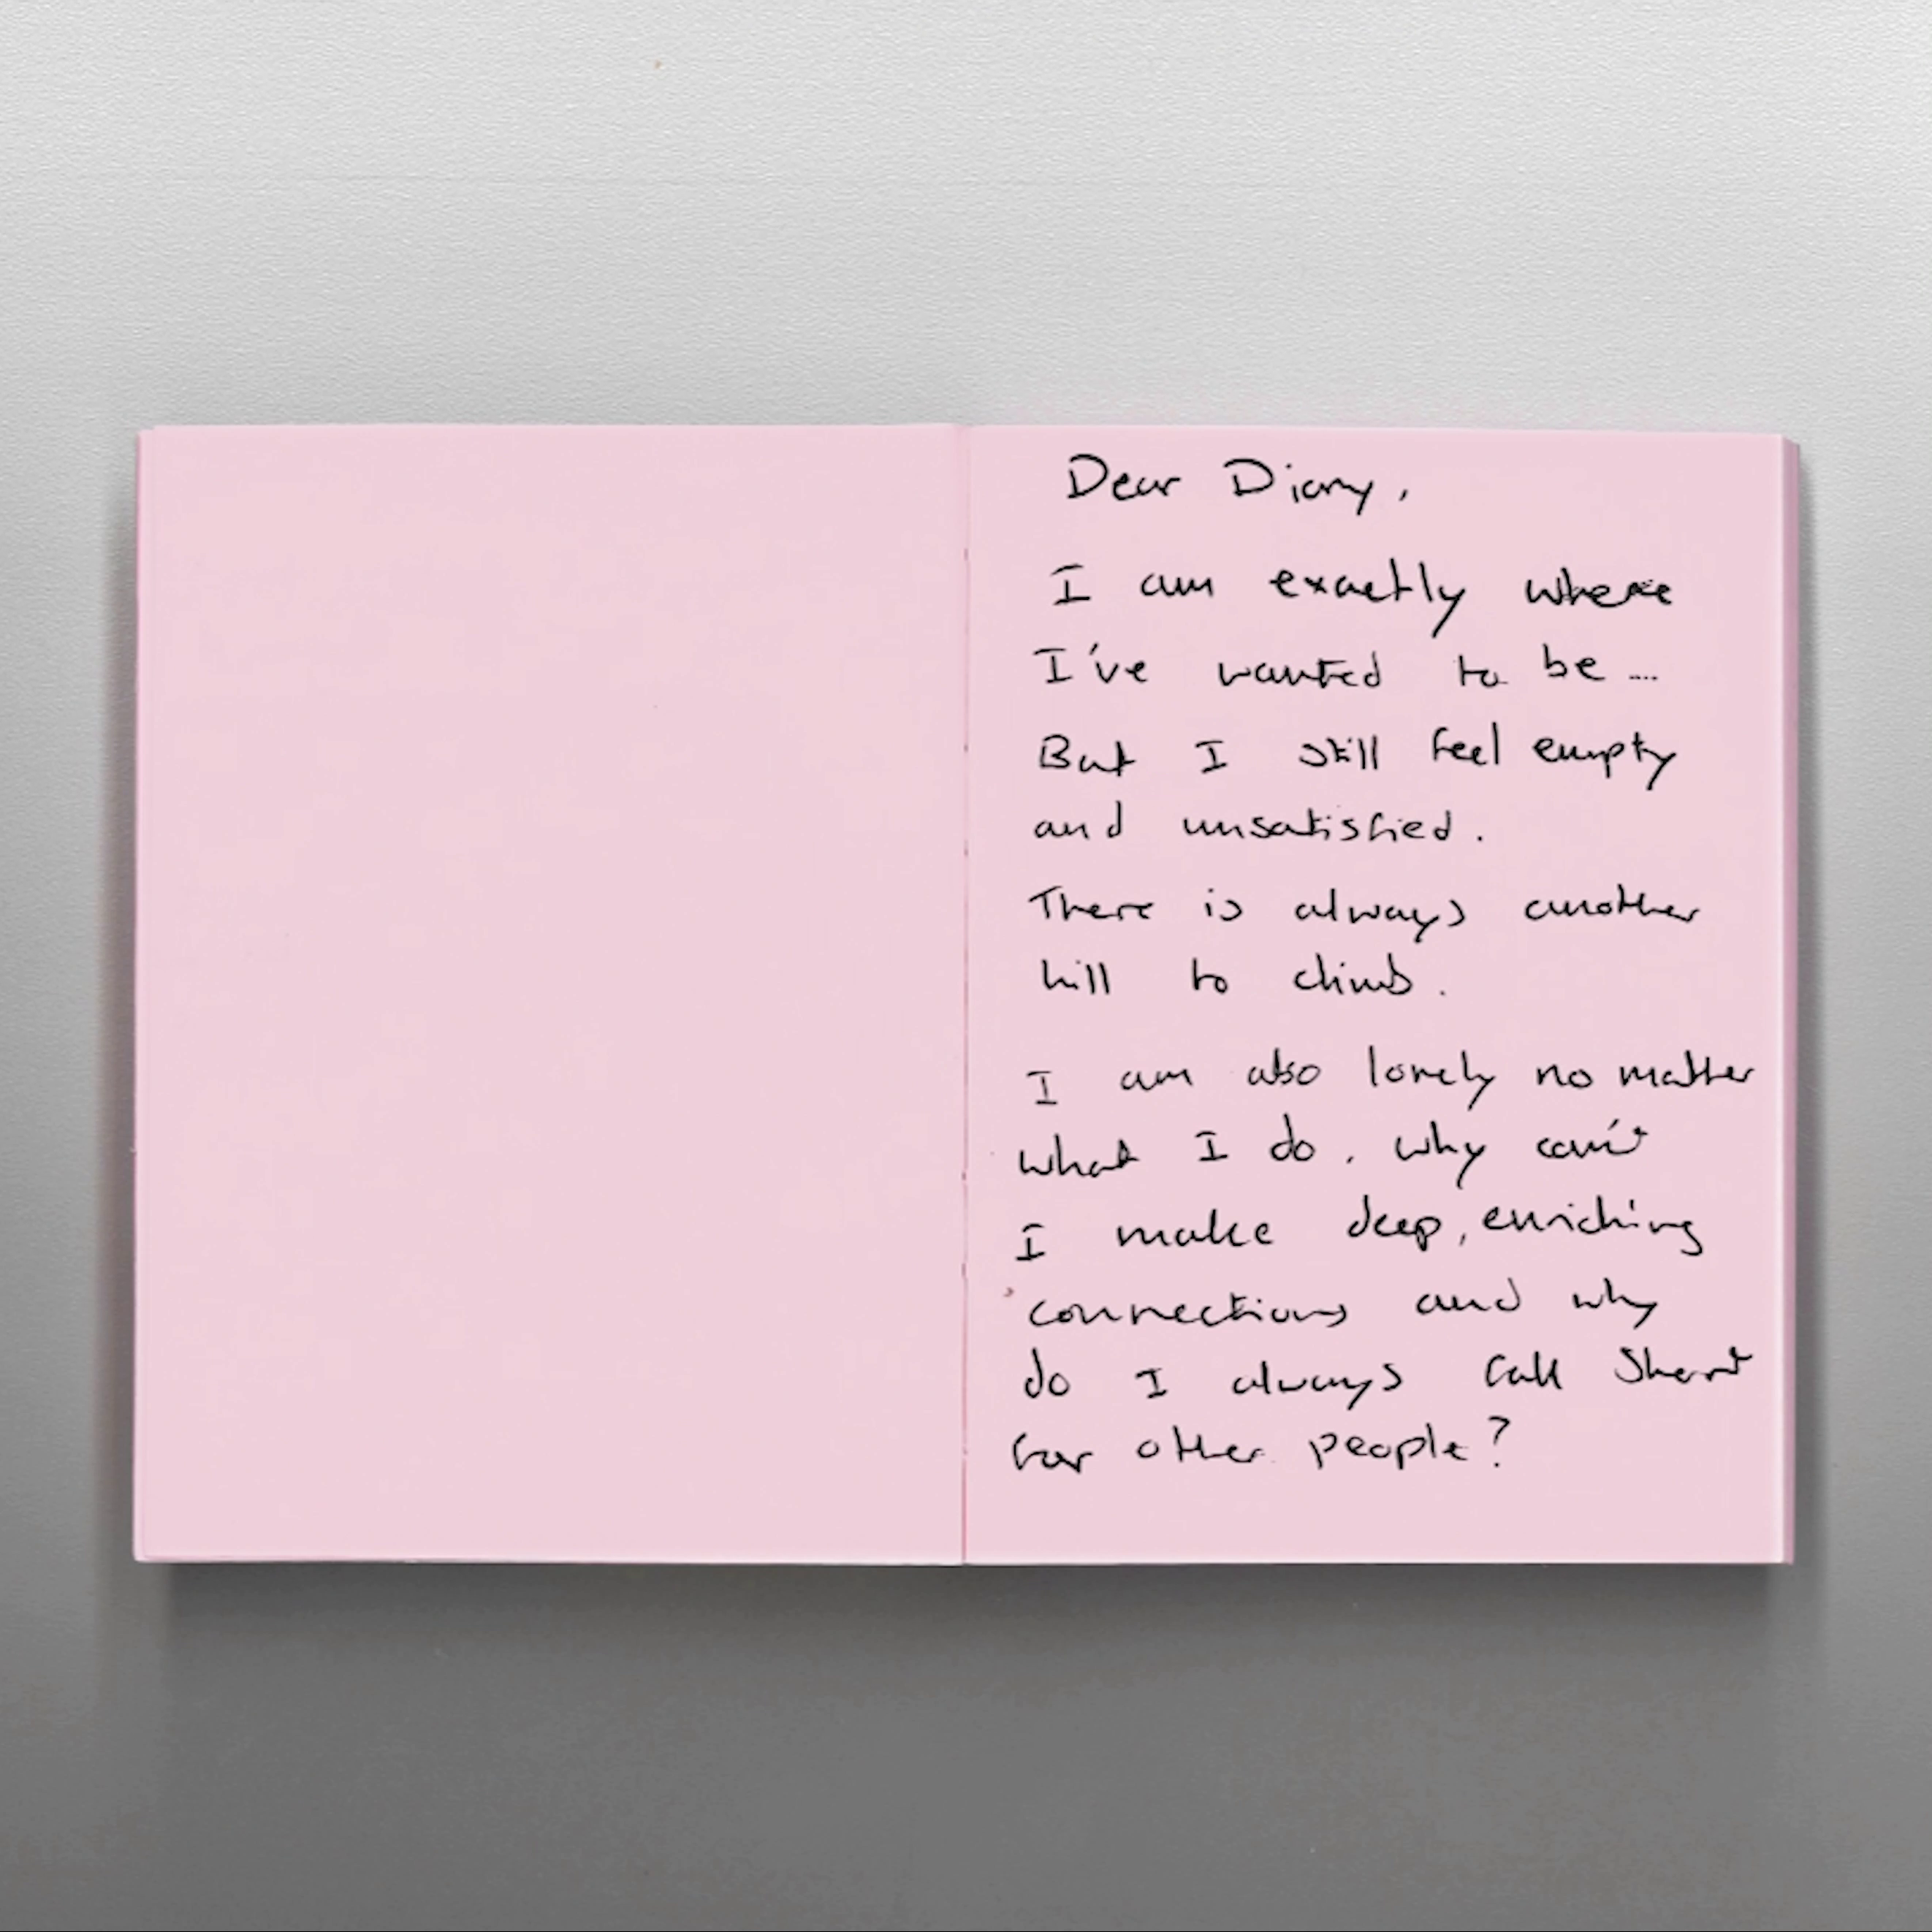 Dear Diary,
I am exactly where
I've wanted to be ....
But I still feel empty
and unsatisfied.
There is always another
hill to climb.
I am also lonely no matter
what I do. Why can't
I make deep, enriching
connections and why
do I always fall short
for other people?